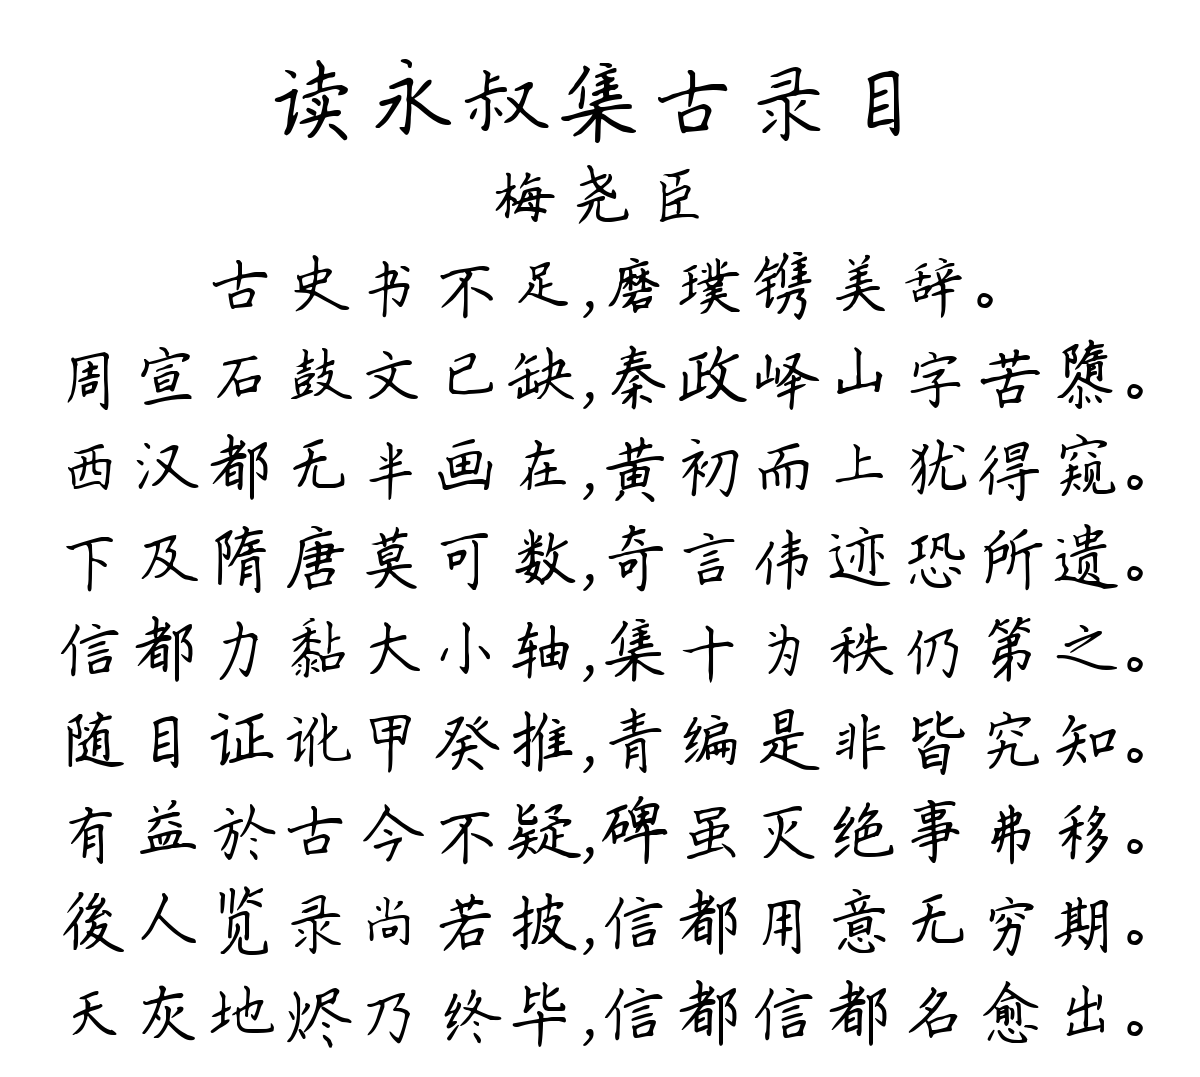 读永叔集古录目
梅尧臣
古史书不足,磨璞镌美辞。
周宣石鼓文已缺,秦政峄山字苦隳。
西汉都无半画在,黄初而上犹得窥。
下及隋唐莫可数,奇言伟迹恐所遗。
信都力黏大小轴,集十为秩仍第之。
随目证讹甲癸推,青编是非皆究知。
有益於古今不疑,碑虽灭绝事弗移。
後人览录尚若披,信都用意无穷期。
天灰地烬乃终毕,信都信都名愈出。